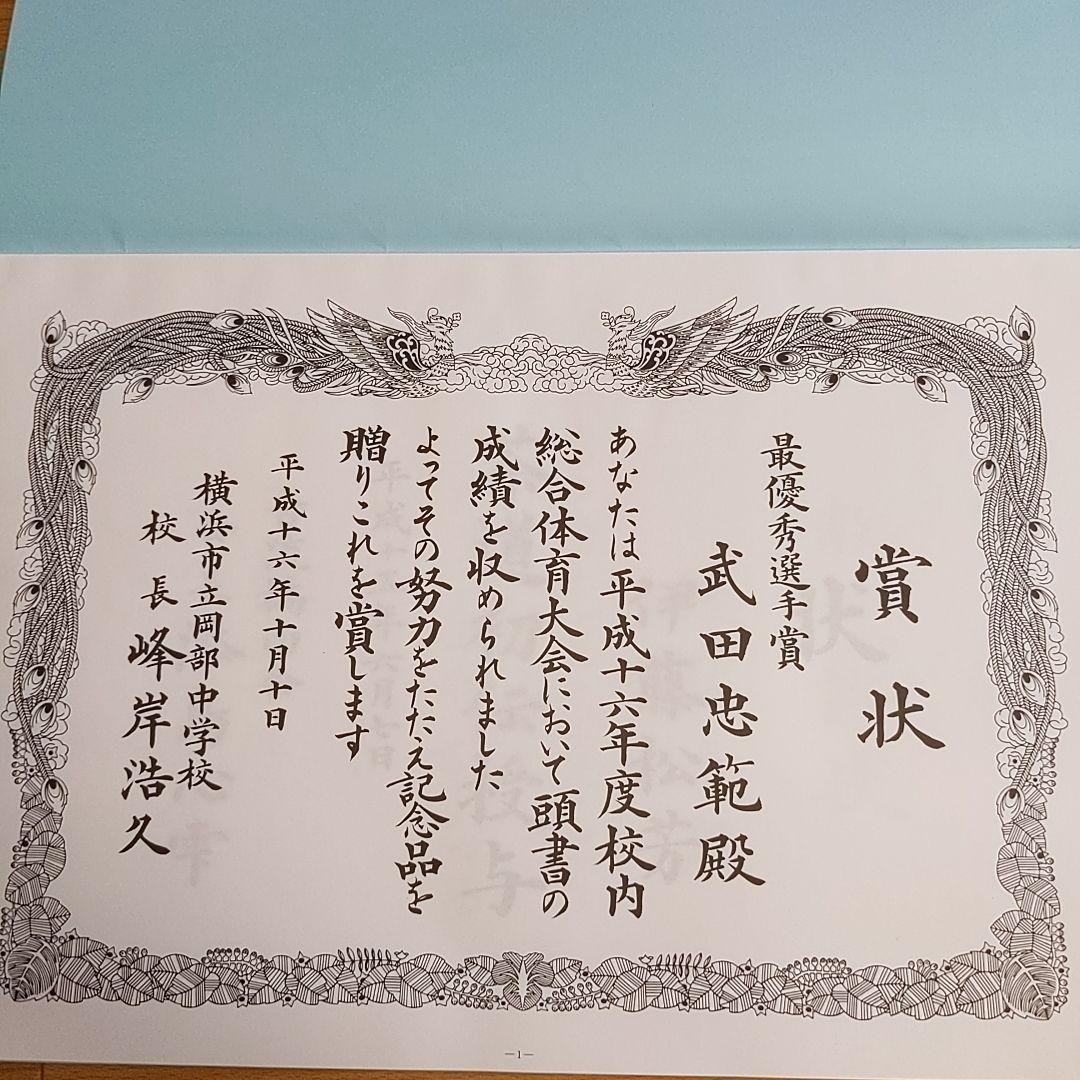 賞状
最優秀選手賞
武田忠範殿
あなたは平成十六年度校内
総合体育大会において頭書の
成績を収められました
よってその努力をたたえ記念品を
贈りこれを賞します
平成十六年十月十日
横浜市立岡部中学校
校長 峰岸浩久
—1—